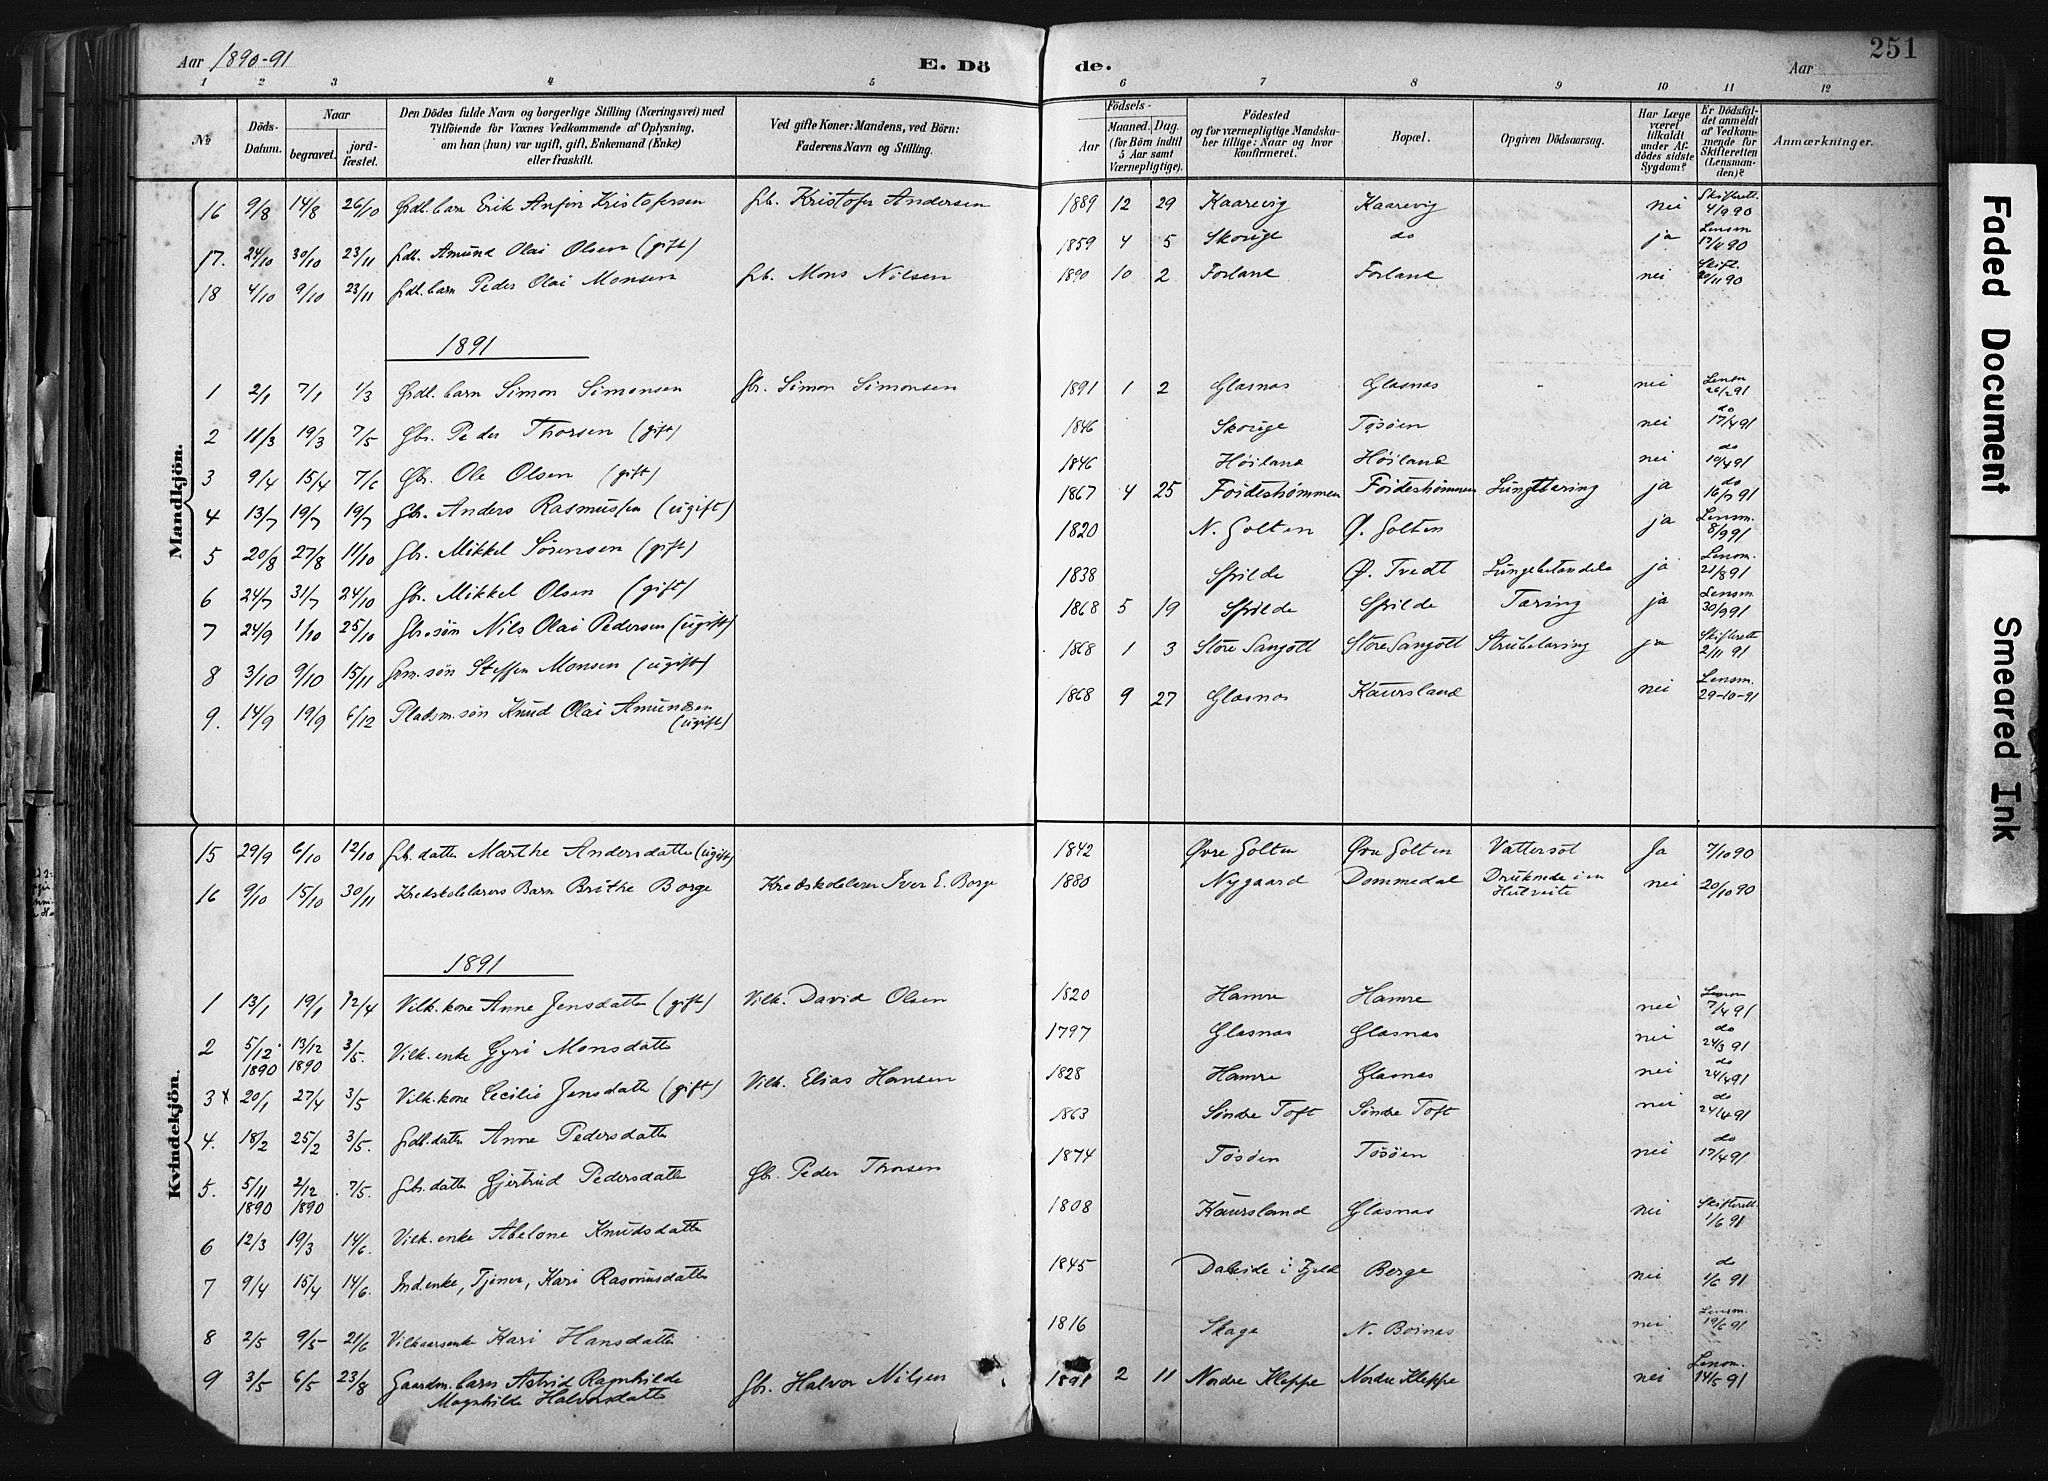 Aar 1890-91
E. Dö
de.
Aar
251
1 2 3 4 5 6 7 8 9 10 11 12
№
Döds-Datum.
Naar
begravet.
jord-fæstet.
Den Dödes fulde Navn og borgerlige Stilling (Næringsvei) med
Tilföiende for Voxnes Vedkommende af Oplysning,
om han (hun) var ugift, gift, Enkemand (Enke)
eller fraskilt.
Ved gifte Koner: Mandens, ved Börn:
Faderens Navn og Stilling.
Födsels-
Aar
Maaned.
Dag.
(for Börn indtil
5 Aar samt
Værnepligtige).
Födested
og for værnepligtige Mandska-
ber tillige: Naar og hvor
konfirmeret.
Bopæl.
Opgiven Dödsaarsag.
Har Læge
været
tilkaldt
under Af-
dödes sidste
Sygdom?
Er Dödsfal-
det anmeldt
af Vedkom-
mende for
Skifteretten
(Lensman-
den)?
Anmærkninger.
Mandkjön.
16 9/8 14/8 26/10 Grdl. barn Erik Anfin Kristofersen Gb. Kristofer Andersen 1889 12 29 Kaarevig Kaarevig nei Skifterett. 4/9 90
17. 24/10 30/10 23/11 Grdl. Amund Olai Olsen (gift) 1859 4 5 Skouge do ja Lensm
18 4/10 9/10 23/11 Grdl. barn Peder Olai Monsen Gb. Mons Nilsen 1890 10 2 Forland Forland nei Skift. 20/11 90
1891
1 2/1 7/1 1/3 Grdl. barn Simon Simonsen Gbr. Simon Simonsen 1891 1 2 Glasnas Glasnas - nei Lensm 26/2 91
2 11/3 19/3 7/5 Gbr. Peder Thorsen (gift) 1846 Skouge Tøsöen nei do 17/4 91
3 9/4 15/4 7/6 Gbr. Ole Olsen (gift) 1846 Höiland Höiland nei do 10/4 91
4 13/7 19/7 19/7 Gbr. Anders Rasmussen (ugift) 1867 4 25 Foideshømmen Foideshømmen Lungetæring ja do 16/7 91
5 20/8 27/8 11/10 Gbr. Mikkel Sørensen (gift) 1820 N. Golten Ø. Golten ja Lensm. 8/9 91
6 24/7 31/7 24/10 Gbr. Mikkel Olsen (gift) 1838 Spilde Ø. Tvedt Lungebetændelse ja Lensm. 21/8 91
7 24/9 1/10 25/10 Gbr. søn Nils Olai Pedersen (ugift) 1868 5 19 Spilde Spilde Tæring ja Lensm 30/9 91
8 3/10 9/10 15/11 Grm. søn Steffen Monsen (ugift) 1868 1 3 Store Sangolt Store Sangolt Strubetæring ja Skifterett 2/11 91
9. 14/9 19/9 6/12 Pladsm. søn Knud Olai Amundsen (ugift) 1868 9 27 Glasnas Kaursland nei Lensm. 29-10-91
Kvindekjön.
15 29/9 6/10 12/10 Gb. datter Marthe Andersdatter (ugift) 1842 Øvre Golten Øvre Golten Vattersot Ja 7/10 90
16 9/10 15/10 30/11 Kredsskolelærers Barn Brithe Borge Kredsskolelærer Iver E. Borge 1880 Nygaard Dommedal Druknede i en nei 20/10 90
1891
1 13/1 19/1 12/4 Vilk. kone Anne Jensdatter (gift) Vilk. David Olsen 1820 Hamre Hamre nei Lensm 7/4 91
2 5/12 1890 13/12 1890 3/5. Vilk. enke Gyri Monsdatter 1797 Glasnas Glasnas nei do 24/3 91
3 x 20/1 27/4 3/5 Vilk. kone Cecilie Jensdatter (gift) Vilk. Elias Hansen 1828 Hamre Glasnas nei do 24/4 91
4. 18/2 25/2 3/5. Grdb. datter Anne Pedersdatter 1863 Søndre Toft Søndre Toft nei do 24/4 91
5. 5/11 1890 2/12 1890 7/5. Gbr. datter Gjertrud Pedersdatter Gb. Peder Thorsen 1874 Tøsöen Tøsöen nei do 17/4 91
6 12/3 19/3 14/6. Vilk. enke Abelone Knudsdatter 1808 Kaursland Glasnas nei Skifterett. 1/6 91
7 9/4 15/4 14/6. Ind. enke, Tjener, Kari Rasmusdatter 1845 Daleide i Fjeld Berge nei do 1/6 91
8 2/5 9/5 21/6 Vilkaarsenke Kari Hansdatter 1816 Skage N. Boinas nei Lensm. 19/6 91
9 3/5 6/5 23/8 Gaardm. barn Astrid Ragnhilde Magnhilde Halvorsdatter Gb. Halvor Nilsen 1891 2 11 Nordre Kleppe Nordre Kleppe nei Lensm. 14/5 91
Faded Document
Smeared Ink